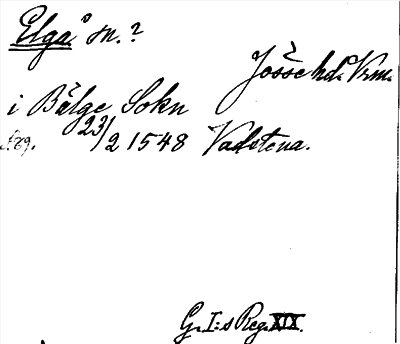 Elgå sn.?
Jösse hd. Vrm.
i Bälge Sokn
23/2 1548 Vadstena.
G. I:s Reg. XIX.